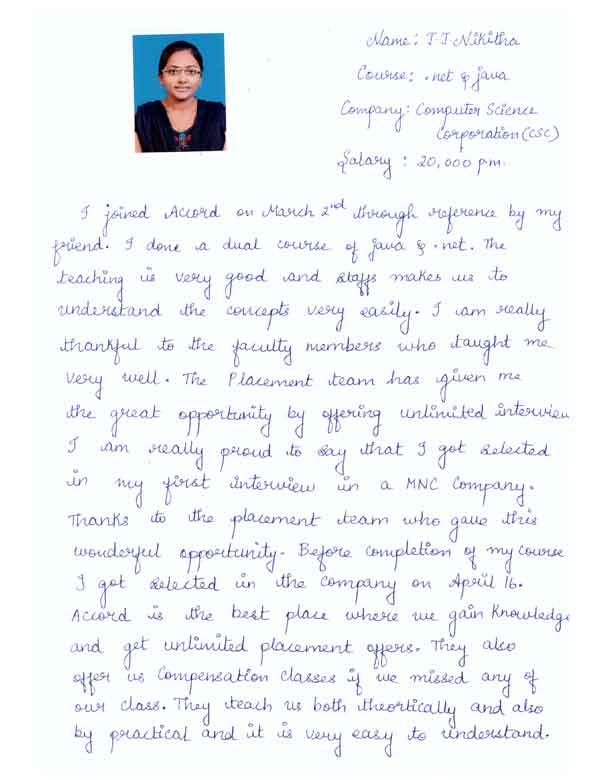 Name: T.T.Nikitha
Course: .net & java
Company: Computer Science
Corporation (CSC)
Salary : 20,000 p.m.
I joined Accord on March 2nd through reference by my
friend. I done a dual course of java & .net. The
teaching is very good and staffs makes us to
understand the concepts very easily. I am really
thankful to the faculty members who taught me
very well. The Placement team has given me
the great opportunity by offering unlimited interview
I am really proud to say that I got selected
in my first interview in a MNC Company.
Thanks to the placement team who gave this
wonderful opportunity. Before completion of my course
I got selected in the company on April 16.
Accord is the best place where we gain knowledge
and get unlimited placement offers. They also
offer us compensation classes if we missed any of
our class. They teach us both theortically and also
by practical and it is very easy to understand.